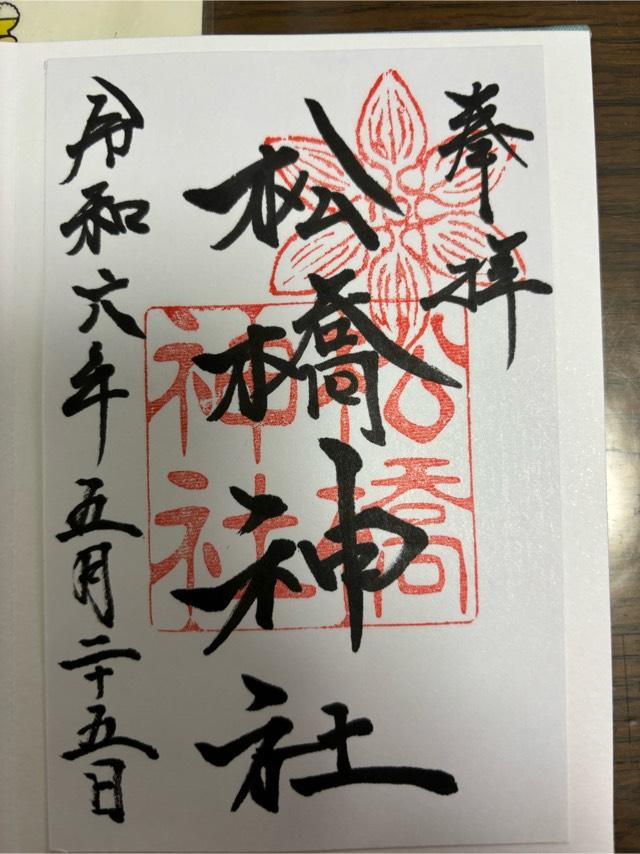 奉拝
松橋神社
松橋
神社
令和六年五月二十五日